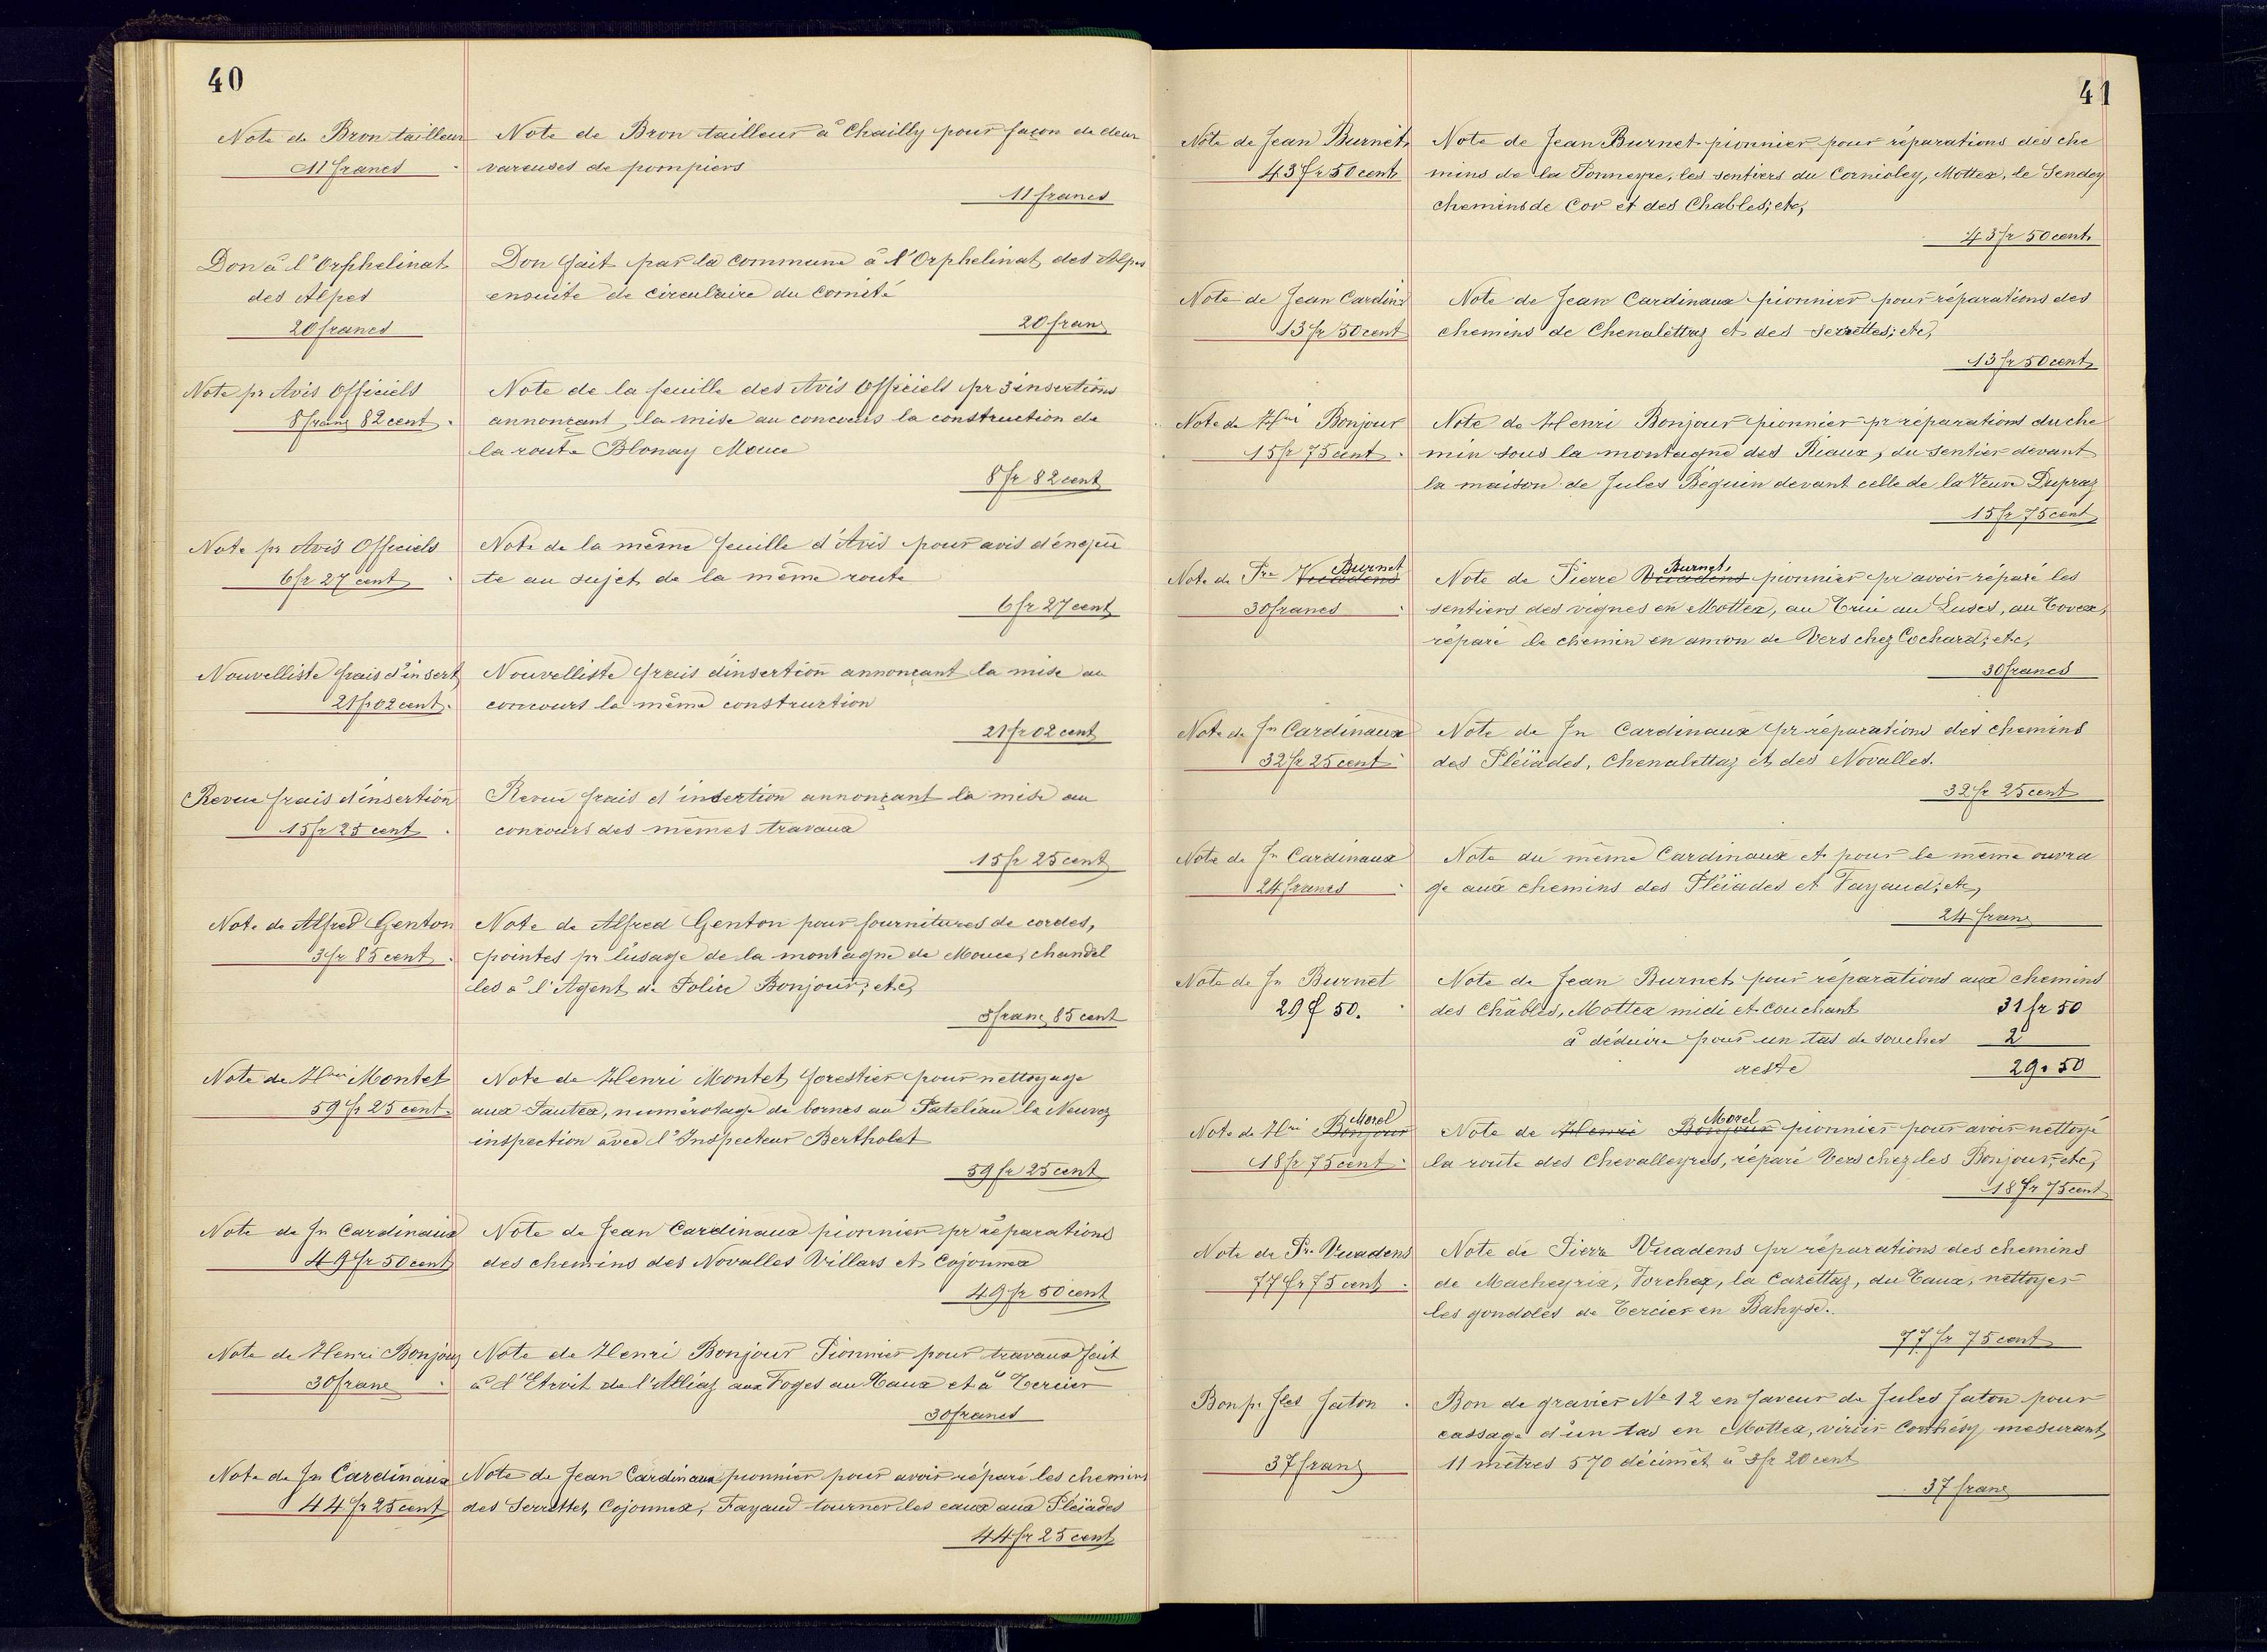 40
Note de Bron tailleur
11 francs
Note de Bron tailleur à Chailly pour façon de deux
vareuses de pompiers
11 francs
Don à l'Orphelinat
des Alpes
20 francs
Don fait par la commune à l'Orphelinat des Alpes
ensuite de circulaire du Comité
20 francs
Note pr Avis Officiels
8 francs 82 cent
Note de la feuille des Avis Officiels pr 3 insertions
annonçant la mise au concours la construction de
la route Blonay Mouce
8 fr 82 cent
Note pr Avis Officiels
6 fr 27 cent
Note de la même feuille d'Avis pour avis d'enquê
te au sujet de la même route
6 fr 27 cent
Nouvelliste frais d'insert
21 fr 02 cent
Nouvelliste frais d'insertion annonçant la mise au
concours la même construction
21 fr 02 cent
Revue frais d'insertion
15 fr 25 cent
Revue frais d'insertion annonçant la mise au
concours des mêmes travaux
15 fr 25 cent
Note de Alfred Genton
3 fr 85 cent
Note de Alfred Genton pour fournitures de cordes,
pointes pr l'usage de la montagne de Mouce, chandel
les à l'Agent de Police Bonjour, etc,
3 franc 85 cent
Note de Hri Montet
59 fr 25 cent
Note de Henri Montet forestier pour nettoyage
aux Pautex, numérotage de bornes au Patelian la Neuvaz
inspection avec l'Inspecteur Bertholet
59 fr 25 cent
Note de Jn Cardinaux
49 fr 50 cent
Note de Jean Cardinaux pionnier pr réparations
des chemins des Novalles Villars et Cojonnex
49 fr 50 cent
Note de Henri Bonjour
30 franc
Note de Henri Bonjour Pionnier pour travaux fait
à l'Etroit de l'Alliaz aux Foges au Taux et à Tercier
30 francs
Note de Jn Cardinaux
44 fr 25 cent
Note de Jean Cardinaux pionnier pour avoir réparé les chemins
des Serrettes, Cojonnex, Fayaud tourner les eaux aux Pléïades
44 fr 25 cent
41
Note de Jean Burnet
43 fr 50 cent
Note de Jean Burnet pionnier pour réparations des che
mins de la Ponneyre, les sentiers du Cornioley, Mottex, le Sendey
chemins de Cor et des Chables, etc,
43 fr 50 cent.
Note de Jean Cardinx
13 fr 50 cent
Note de Jean Cardinaux pionnier pour réparations des
chemins de Chenalettaz et des Serrettes, etc,
13 fr 50 cent
Note de Hri Bonjour
15 fr 75 cent
Note de Henri Bonjour pionnier pr réparations du che
min sous la montagne des Riaux, du sentier devant
la maison de Jules Béguin devant celle de la Veuve Dupraz
15 fr 75 cent
Note de Pre Vuadens Burnet
30 francs
Note de Pierre Vuadens Burnet, pionnier pr avoir réparé les
sentiers des vignes en Mottex, au Crui au Luses, au Tovex,
réparé le chemin en amon de Vers chez Cochard, etc,
30 francs
Note de Jn Cardinaux
32 fr 25 cent
Note de Jn Cardinaux pr réparations des chemins
des Pléïades, Chenalettaz et des Novalles.
32 fr 25 cent
Note de Jn Cardinaux
24 francs
Note du même Cardinaux et pour le même ouvra
ge aux chemins des Pléïades et Fayaud, etc,
24 franc
Note de Jn Burnet
29 f 50.
Note de Jean Burnet pour réparations aux chemins
des Châbles, Mottex midi et couchant 31 fr 50
à déduire pour un tas de souches 2
reste 29.50
Note de Hri Bonjour Morel
18 fr 75 cent
Note de Henri Bonjour Morel pionnier pour avoir nettoyé
la route des Chevalleyres, réparé Vers chez les Bonjour, etc,
18 fr 75 cent
Note de Pr. Vuadens
77 fr 75 cent
Note de Pierre Vuadens pr réparations des chemins
de Macheyrix, Porchex, la Cazettaz, du Taux, nettoyer
les gondoles de Tercier en Bahyse.
77 fr 75 cent
Bon pr Jles Jaton
37 francs
Bon de gravier No 12 en faveur de Jules Jaton pour
cassage d'un tas en Mottex, vis-à-vis Corthésy mesurant
11 mètres 570 décimèt à 3 fr 20 cent
37 franc